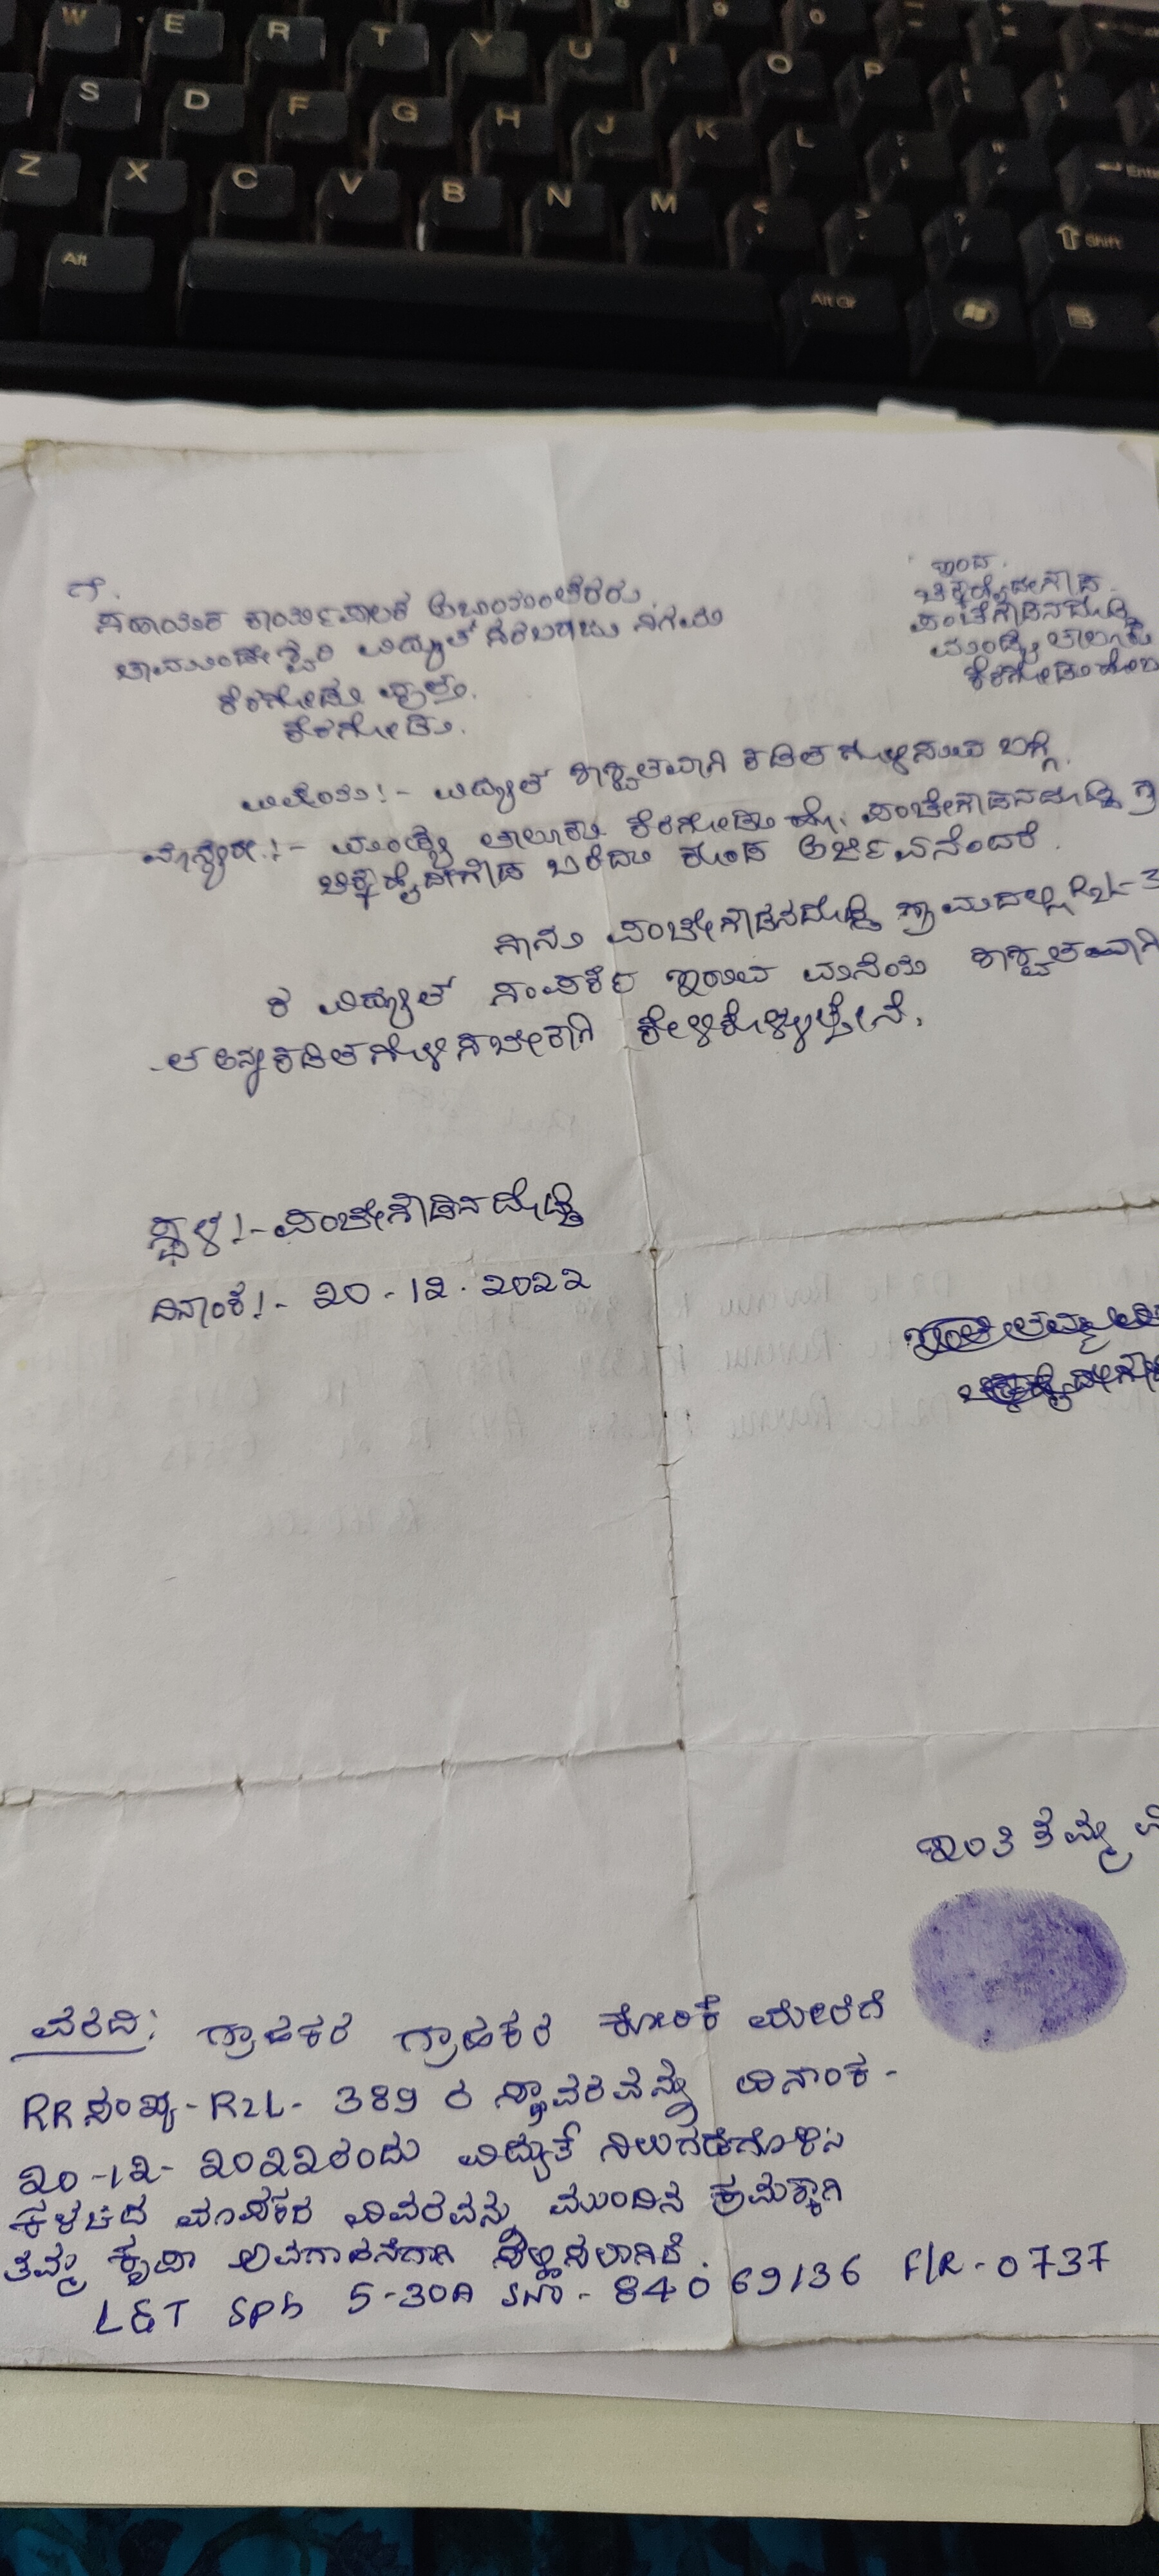 W E R T Y U I O P
S D F G H J K L
Z X C V B N M Shift
Alt Alt Gr
ಗೆ.
ಸಹಾಯಕ ಕಾರ್ಯಪಾಲಕ ಅಭಿಯಂತರರು
ಚಾಮುಂಡೇಶ್ವರಿ ವಿದ್ಯುತ್ ಸರಬರಾಜು ನಿಗಮ
ಕೆರಗೋಡು ವೃತ್ತ.
ಕೆರಗೋಡು.
ಇಂದ.
ಮಂಡ್ಯ ತಾಲೂಕು
ಕೆರಗೋಡು
ವಿಷಯ:- ವಿದ್ಯುತ್ ಶಾಶ್ವತವಾಗಿ ಕಡಿತಗೊಳಿಸುವ ಬಗ್ಗೆ.
ಮಾನ್ಯರೇ:- ಮಂಡ್ಯ ತಾಲೂಕು ಕೆರಗೋಡು ಹೋ. ಪಂಚೇಗೌಡನದೊಡ್ಡಿ
ಬರೆದು ಕೊಂಡ ಅರ್ಜಿ ಏನೆಂದರೆ.
ನಾನು ಪಂಚೇಗೌಡನದೊಡ್ಡಿ ಗ್ರಾಮದಲ್ಲಿ R2L-3
ರ ವಿದ್ಯುತ್ ಸಂಪರ್ಕ ಇರುವ ಮನೆಯ ಶಾಶ್ವತವಾಗಿ
ಕಡಿತಗೊಳಿಸಬೇಕಾಗಿ ಕೇಳಿಕೊಳ್ಳುತ್ತೇನೆ.
ಸ್ಥಳ:- ಪಂಚೇಗೌಡನದೊಡ್ಡಿ
ದಿನಾಂಕ:- 20-12-2022
ಇಂತಿ ತಮ್ಮ
ವರದಿ: ಗ್ರಾಹಕರ ಗ್ರಾಹಕರ ಕೋರಿಕೆ ಮೇರೆಗೆ
RR ಸಂಖ್ಯೆ-R2L-389 ರ ಸ್ಥಾವರವನ್ನು ದಿನಾಂಕ-
20-12-2022ರಂದು ವಿದ್ಯುತ್ ನಿಲುಗಡೆಗೊಳಿಸಿ
ಕಳಚಿದ ಮಾಪಕದ ವಿವರವನ್ನು ಮುಂದಿನ ಕ್ರಮಕ್ಕಾಗಿ
ತಮ್ಮ ಕೃಪಾ ಅವಗಾಹನೆಗಾಗಿ ಸಲ್ಲಿಸಲಾಗಿದೆ.
L&T SPh 5-30A SNO-84069136 F/R-0737